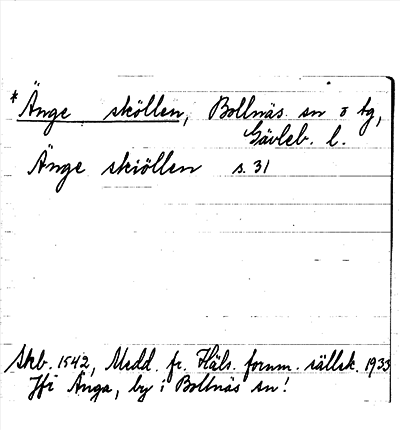 *Änge sköllen, Bollnäs sn o tg,
Gävleb. l.
Änge skiöllen s. 31
Skb. 1542, Medd. fr. Häls. fornm. sällsk. 1933
Jfr Änga, by i Bollnäs sn!